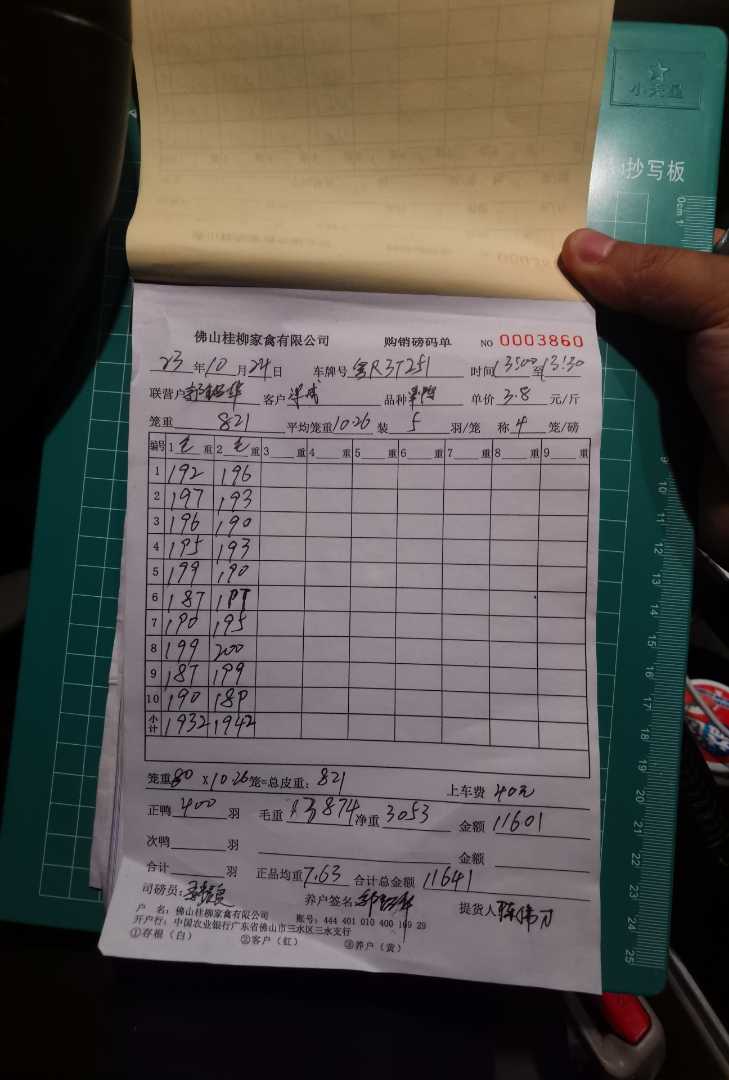 小天星
抄写板
0cm 1
佛山桂柳家禽有限公司 购销磅码单 NO 0003860
23 年 10 月 24 日 车牌号 R3T251 时间 13:00 至 13:30
联营户 客户 梁成 品种 单价 3.8 元/斤
笼重 821 平均笼重 10.26 装 5 羽/笼 称 4 笼/磅
编号 1 毛 重 2 毛 重 3 重 4 重 5 重 6 重 7 重 8 重 9 重
1 192 196
2 197 193
3 196 190
4 195 193
5 199 190
6 187
7 190 195
8 199 200
9 187 199
10 190 189
小计 1932 1942
笼重 80 X 10.26 笼=总皮重: 821 上车费 40元
正鸭 400 羽 毛重 3874 净重 3053 金额 11601
次鸭 羽 金额
合计 羽 正品均重 7.63 合计总金额 11641
司磅员: 养户签名 提货人
户 名: 佛山桂柳家禽有限公司 账号: 444 401 010 400 169 29
开户行: 中国农业银行广东省佛山市三水区三水支行
①存根（白） ②客户（红） ③养户（黄）
9
10
11
12
13
14
15
16
17
18
19
20
21
22
23
24
25